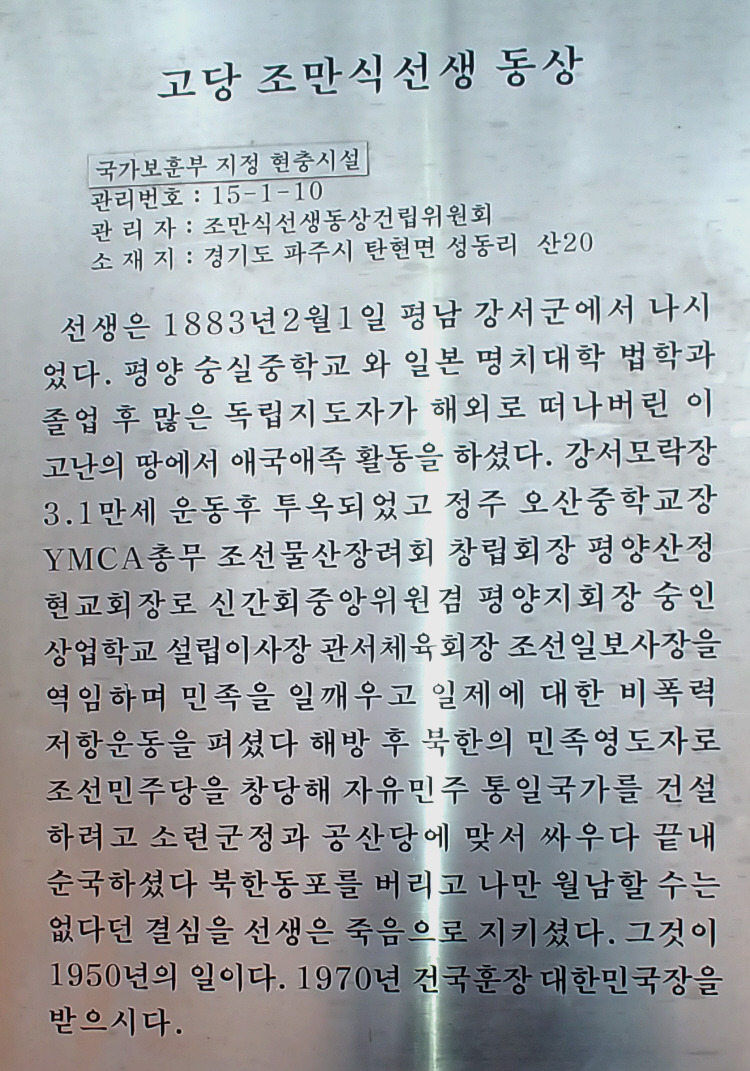 고당 조만식선생 동상
국가보훈부 지정 현충시설
관리번호 : 15-1-10
관 리 자 : 조만식선생동상건립위원회
소 재 지 : 경기도 파주시 탄현면 성동리 산20
선생은 1883년2월1일 평남 강서군에서 나시
었다. 평양 숭실중학교 와 일본 명치대학 법학과
졸업 후 많은 독립지도자가 해외로 떠나버린 이
고난의 땅에서 애국애족 활동을 하셨다. 강서모락장
3.1만세 운동후 투옥되었고 정주 오산중학교장
YMCA총무 조선물산장려회 창립회장 평양산정
현교회장로 신간회중앙위원겸 평양지회장 숭인
상업학교 설립이사장 관서체육회장 조선일보사장을
역임하며 민족을 일깨우고 일제에 대한 비폭력
저항운동을 펴셨다 해방 후 북한의 민족영도자로
조선민주당을 창당해 자유민주 통일국가를 건설
하려고 소련군정과 공산당에 맞서 싸우다 끝내
순국하셨다 북한동포를 버리고 나만 월남할 수는
없다던 결심을 선생은 죽음으로 지키셨다. 그것이
1950년의 일이다. 1970년 건국훈장 대한민국장을
받으시다.